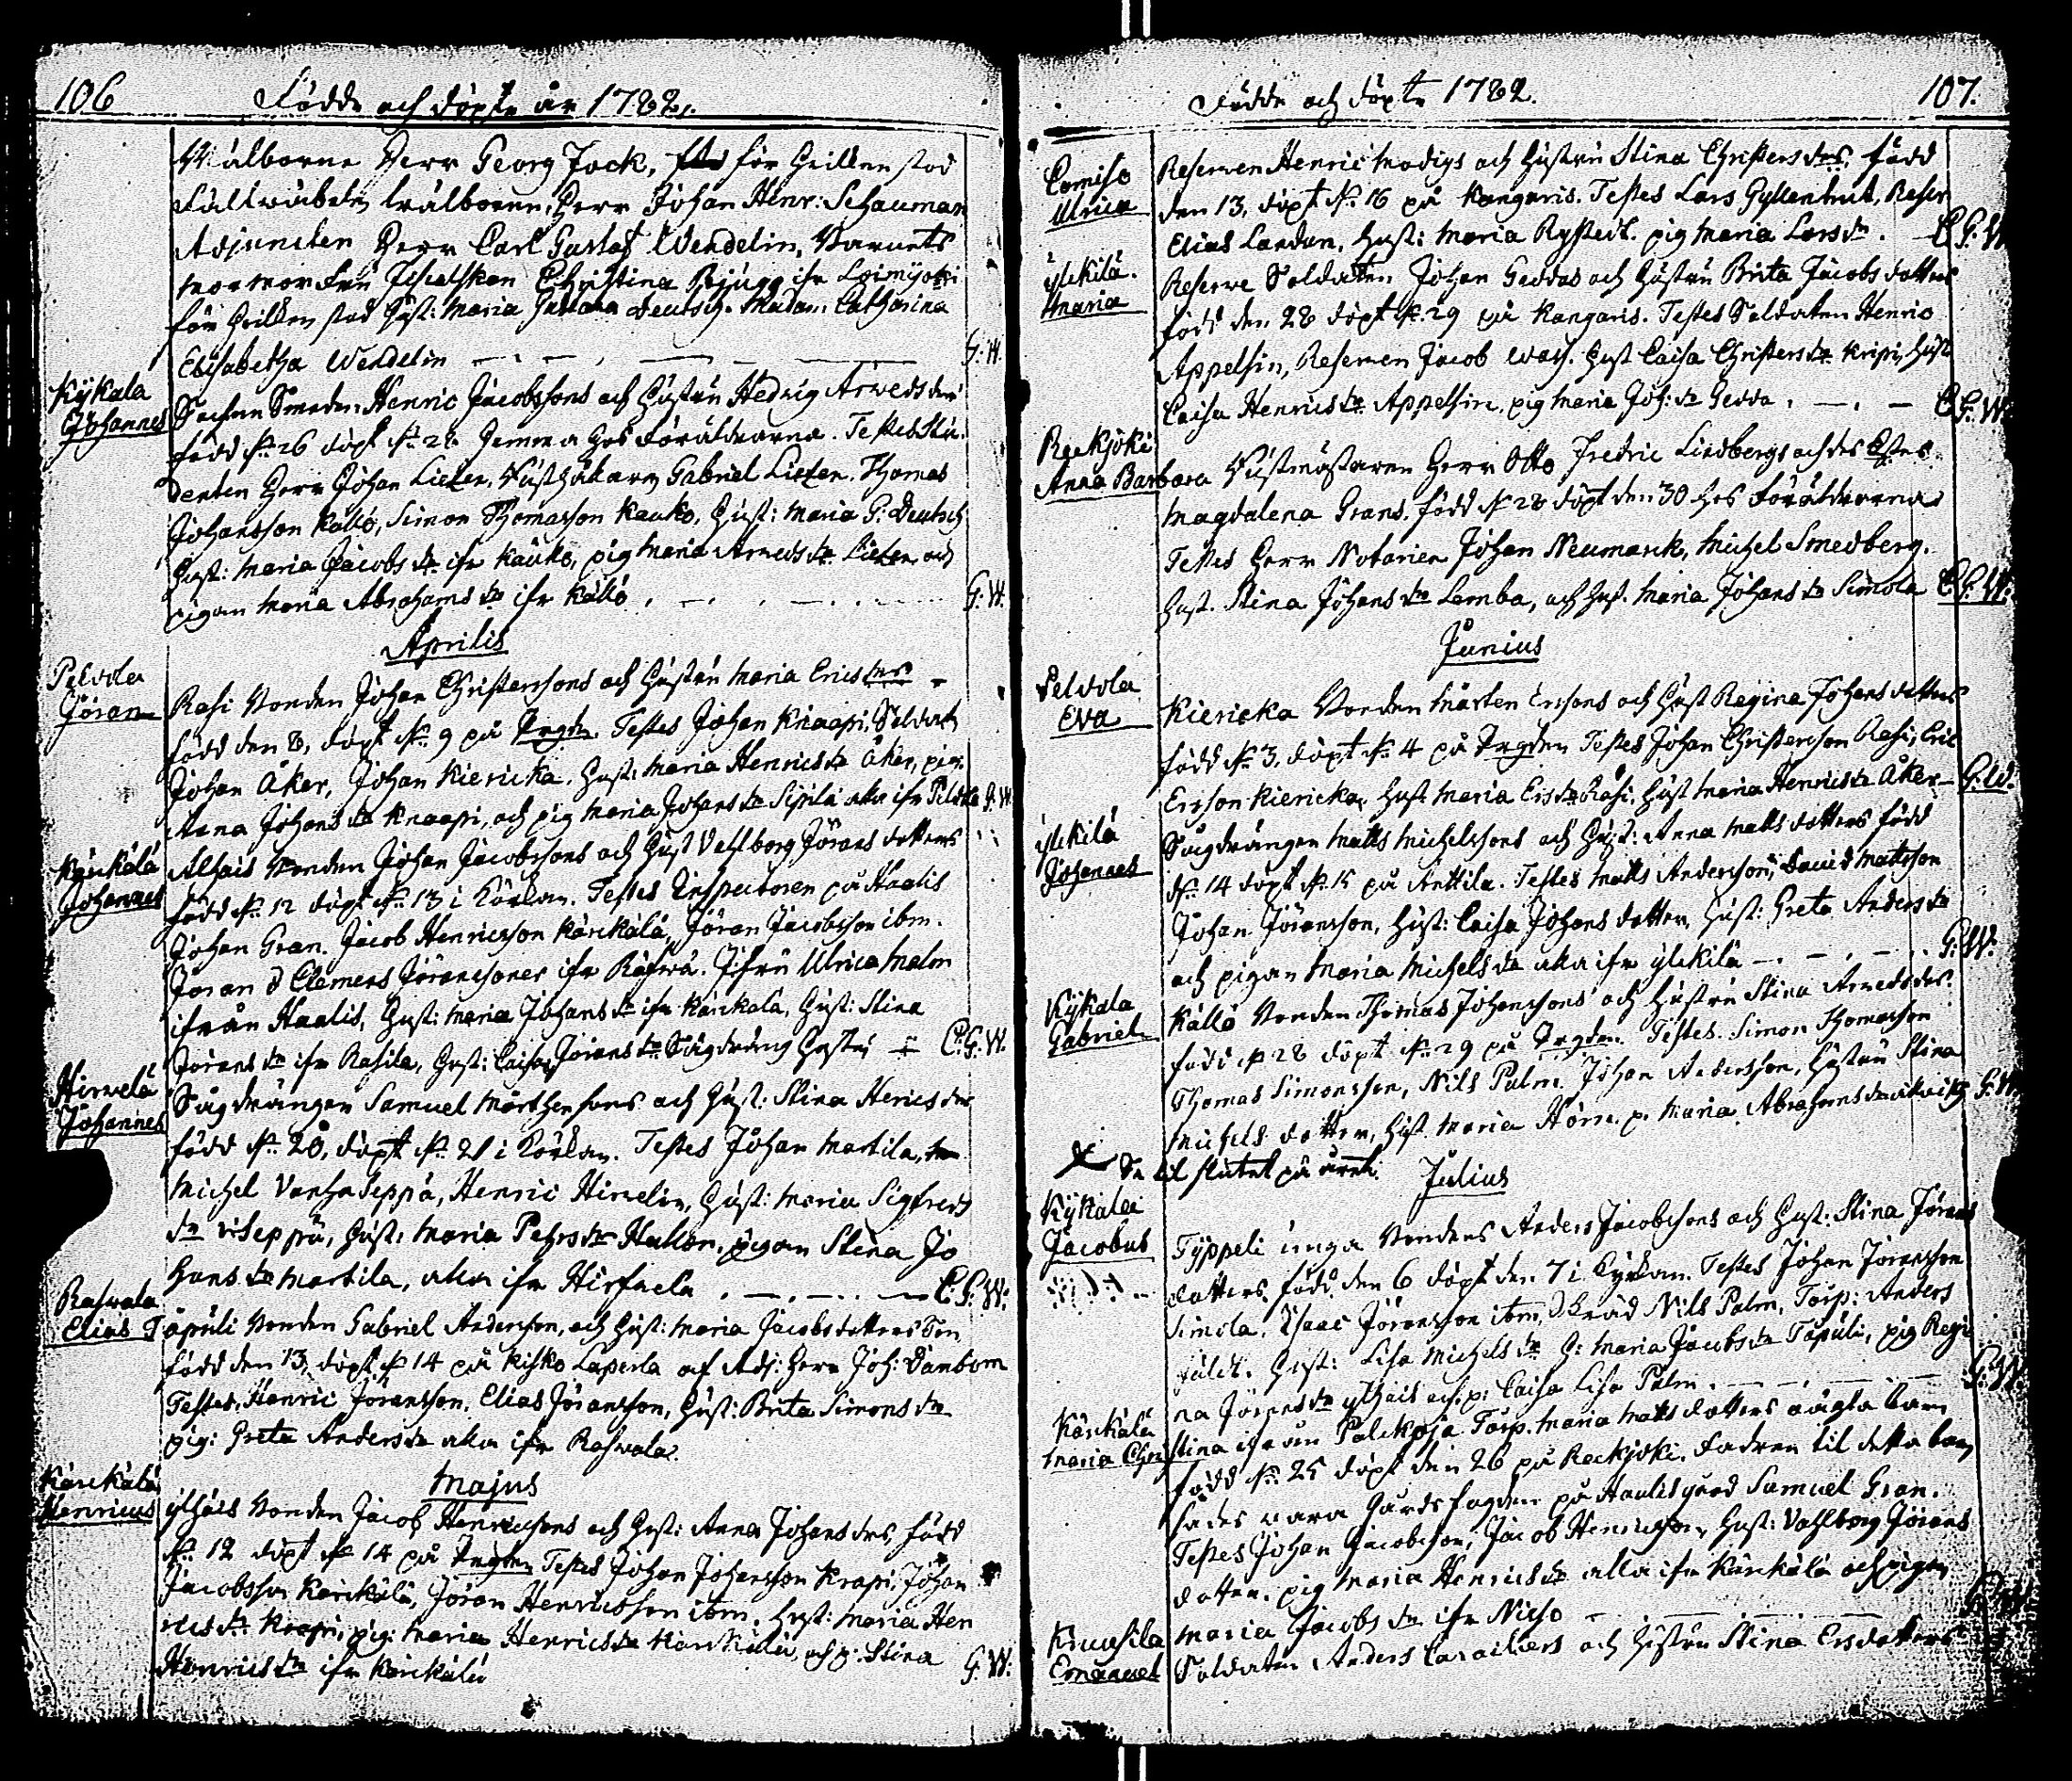 106
Födde och döpte år 1782.
Wälborne Herr Georg Jack, för hvilken stod
Fältwäbeln wälborne Herr Johan Henr: Schauman
Adjuncten Herr Carl Gustaf Wendelin, Barnets
mormor Fru Fiscalskan Christina Björgg ifr Loimijoki
för hvilken stod Hust: Maria Gustava Deutsch. Madam Catharina
Elisabetha Wendelin G: W.
Kijkala
Johannes
Sochne Smeden Henric Jacobssons och Hustru Hedvig Arvedsdrs
född d. 26 döpt d. 28 hemma hos Föräldrarna. Testes Stu-
denten Herr Johan Lieten, Gabriel Lieten. Thomas
Johansson Källö, Simon Thomasson Kauko, Hust: Maria G: Deutsch
Hust: Maria Jacobs dr ifr Kauko, pig Maria Arveds dr Lieten och
pigan Maria Abrahams dr ifr Källö G: W.
Aprilis
Pelvola
Jöran
Rasi Bonden Johan Christerssons och Hustru Maria Ericsdrs
född den 8, döpt d. 9 på Prgdn. Testes Johan Knaapi, Soldat
Johan Åker, Johan Kiericka, Hust: Maria Henricsdr Åker, pig:
Anna Johans dr Knaapi, och pig Maria Johans dr Sipilä alla ifr Pelvola G: W.
Kärckälä
Johannes
Alhais Bonden Johan Jacobssons och Hust Valborg Jörans dotters
född d. 12 döpt d. 13 i Körkan. Testes Inspectoren på Haalis
Johan Gran. Jacob Henricsson Kärckälä, Jöran Jacobsson ibm.
Joran o Clemens Jöranssoner ifr Rafwa. Jfru Ulrica Malm
ifrån Haalis, Hust: Maria Johans dr ifr Kärckälä, Hust: Stina
Jörans dr ifr Rasila, Hust: Caisa Jörans dr Sågdräng Hustru C. G: W.
Hirvelä
Johannes
Sågdrängen Samuel Mårthenssons och Hust: Stina Henricsdrs
född d. 20, döpt d. 21 i Körkan. Testes Johan Martila,
Michel Vanhaseppä, Henric Hirvelin, Hust: Maria Sigfreds
dr v:Seppä, Hust: Maria Pehrsdr Hallon, pigan Stina Jo
hans dr Martila, alla ifr Hirfvela C. G. W.
Rahvala
Elias
Tapuli Bonden Gabriel Andersson, och Hust: Maria Jacobsdotters Son
född den 13, döpt d 14 på Kisko Laperla af Adj: Herr Joh: Dambom
Testes, Henric Jöransson, Elias Jöransson, Hust: Brita Simons dr
pig: Greta Anders dr alla ifr Rahvala.
Majus
Kärckälä
Henricus
ylhäis Bonden Jacob Henricssons och Hust: Anna Johansdrs, född
d. 12 döpt d 14 på Prgdn Testes Johan Johansson Krapi, Johan
Jacobsson Kärckälä, Jöran Henricsson ibm. Hust: Maria Hen
ricsdr Krapi, pig: Maria Henricsdr Kärckälä, och p: Stina
Henricsdr ifr Kärckälä G. W:
Födde och döpte 1782.
107.
Comiso
Ulrica
Reserven Henric Modigs och Hustru Stina Christersdrs, född
den 13, döpt d. 16 på Kangaris. Testes Lars Gyllentrut, Reserv
Elias Landan, Hust: Maria Rystedt. pig Maria Larsdr. C. G: W
ylekilä.
Maria
Reserve Soldaten Johan Geddas och Hustru Brita Jacobs dotters
född den 28 döpt d. 29 på Kangaris. Testes Soldaten Henric
Appelsin, Reserven Jacob Wass. Hust Caisa Christersdr Kripi, Hust
Caisa Henricsdr Appelsin, pig Maria Joh: dr Gedda. C. G: W:
Reckjöki
Anna Barbara
Herr Otto Fredric Lindbergs och des
Magdalena Grans. född d 28 döpt den 30 hos Föräldrarna
Testes Herr Notarien Johan Neumark, Michel Smedberg.
Hust. Stina Johans dr Lemba, och Hust. Maria Johans dr Simola C. G. W.
Junius
Pelvola
Eva
Kiericka Bonden Mårten Erssons och Hust Regina Johans dotters
född d. 3, döpt d. 4 på Prgdn Testes Johan Christersson Rasi, Eric
Ersson Kiericka, Hust Maria Ersdr Rasi, Hust Maria Henricsdr Åker G: W.
ylekilä
Johannes
Sågdrängen Matts Michelssons och Hust: Anna Matts dotters född
d. 14 döpt d. 15 på Anttila. Testes Matts Andersson, David Mattsson
Johan Jöransson, Hust: Caisa Johans dotter, Hust: Greta Anders dr
och pigan Maria Michels dr alla ifr ylekilä G: W:
Kijkala
Gabriel
Källö Bonden Thomas Johanssons och Hustru Stina Arvedsdrs.
född d 28 döpt d. 29 på Prgdn. Testes. Simon Thomasson
Thomas Simonsson, Nils Palm. Johan Andersson, Hustru Stina
Michels dotter, Hust. Maria Hörn. p. Maria Abrahamsdr G: W
Se til slutet på året.
Julius
Kijkala
Jacobus
Typpeli unga Bondens Anders Jacobssons och Hust: Stina Jörans
dotters, född den 6 döpt den 7 i Kyrkan. Testes Johan Jöransson
Simola. Isaac Jöransson ibm, Nils Palm, Torp: Anders
Hust: Lisa Michels dr H: Maria Jacobs dr Tapuli, pig Regi
na Jörans dr ylhäis och p: Caisa Lisa Palm. G: W
Kärckälä
Maria Christina
ifrån Palckoja Torp. Maria Matts dotters oägta barn
född d. 25 döpt den 26 på Reckjöki. Fadren til detta barn
sades vara Gårdsfogden på Haalisgård Samuel Gran.
Testes Johan Jacobsson, Jacob Henricsson, Hust: Valborg Jörans
dotter. pig Maria Henricsdr alla ifr Kärckälä och pigan
Maria Jacobs dr ifr
Kruusila
Emanuel
Soldaten Anders och Hustru Stina Ersdotters